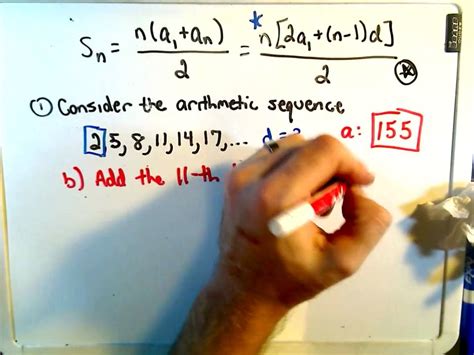 Sₙ = n(a₁+aₙ)/2 = *n[2a₁+(n-1)d]/2
① Consider the arithmetic sequence
2,5,8,11,14,17,... d = a: 155
b) Add the 11-th